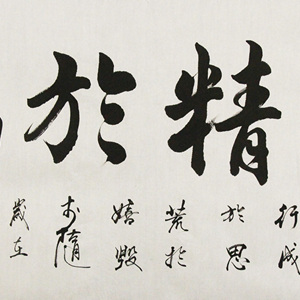 精於
行成
於思
荒於
嬉毁
於隨
歲在